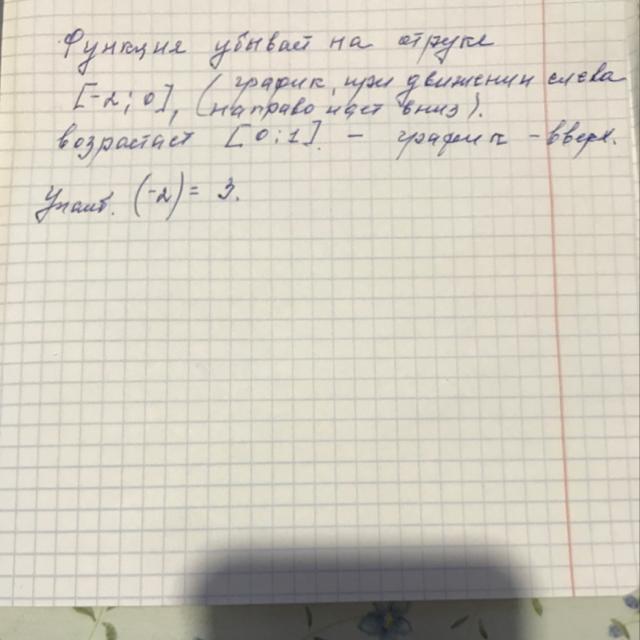 Функция убывает на отрезке
[-2; 0], (график, при движении слева
направо идет вниз).
возрастает [0; 1]. - график - вверх.
Унаиб. (-2) = 3.